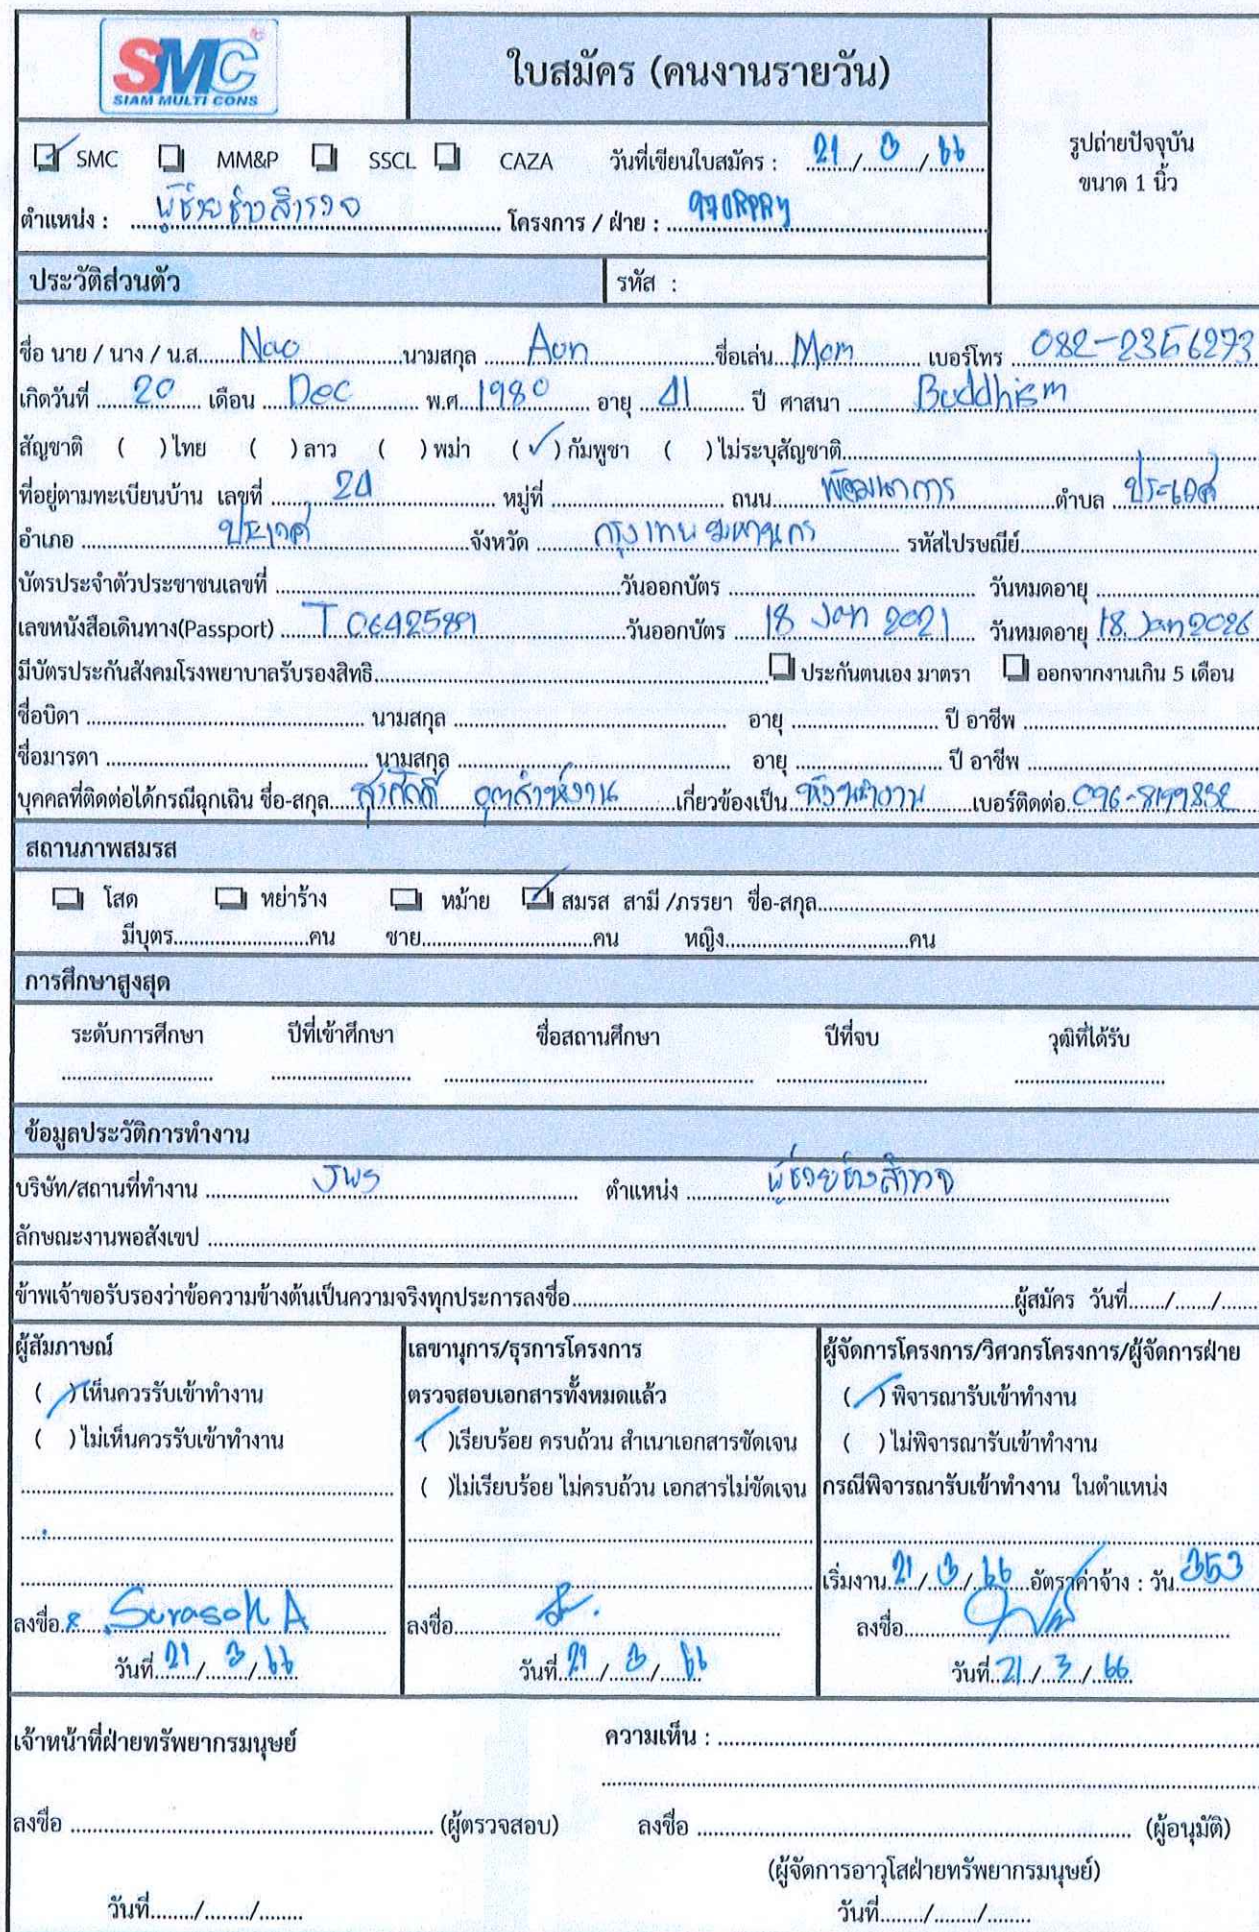 SMC
SIAM MULTI CONS
ใบสมัคร (คนงานรายวัน)
รูปถ่ายปัจจุบัน
ขนาด 1 นิ้ว
SMC MM&P SSCL CAZA วันที่เขียนใบสมัคร : 21/3/66
ตำแหน่ง : ผู้ช่วยช่างสำรวจ โครงการ / ฝ่าย :
ประวัติส่วนตัว รหัส :
ชื่อ นาย / นาง / น.ส. Nao นามสกุล Aon ชื่อเล่น Mom เบอร์โทร 082-2356273
เกิดวันที่ 20 เดือน Dec พ.ศ. 1980 อายุ 41 ปี ศาสนา Buddhism
สัญชาติ ( ) ไทย ( ) ลาว ( ) พม่า (✓) กัมพูชา ( ) ไม่ระบุสัญชาติ
ที่อยู่ตามทะเบียนบ้าน เลขที่ 24 หมู่ที่ ถนน พัฒนาการ ตำบล ประเวศ
อำเภอ ประเวศ จังหวัด กรุงเทพมหานคร รหัสไปรษณีย์
บัตรประจำตัวประชาชนเลขที่ วันออกบัตร วันหมดอายุ
เลขหนังสือเดินทาง(Passport) วันออกบัตร 18 Jan 2021 วันหมดอายุ 18 Jan 2026
มีบัตรประกันสังคมโรงพยาบาลรับรองสิทธิ ประกันตนเอง มาตรา ออกจากงานเกิน 5 เดือน
ชื่อบิดา นามสกุล อายุ ปี อาชีพ
ชื่อมารดา นามสกุล อายุ ปี อาชีพ
บุคคลที่ติดต่อได้กรณีฉุกเฉิน ชื่อ-สกุล สุรศักดิ์ เกี่ยวข้องเป็น หัวหน้างาน เบอร์ติดต่อ
สถานภาพสมรส
โสด หย่าร้าง หม้าย สมรส สามี /ภรรยา ชื่อ-สกุล
มีบุตร คน ชาย คน หญิง คน
การศึกษาสูงสุด
ระดับการศึกษา ปีที่เข้าศึกษา ชื่อสถานศึกษา ปีที่จบ วุฒิที่ได้รับ
ข้อมูลประวัติการทำงาน
บริษัท/สถานที่ทำงาน JWS ตำแหน่ง ผู้ช่วยช่างสำรวจ
ลักษณะงานพอสังเขป
ข้าพเจ้าขอรับรองว่าข้อความข้างต้นเป็นความจริงทุกประการลงชื่อ ผู้สมัคร วันที่ / /
ผู้สัมภาษณ์
(✓) เห็นควรรับเข้าทำงาน
( ) ไม่เห็นควรรับเข้าทำงาน
ลงชื่อ Surasak A
วันที่ 21/3/66
เลขานุการ/ธุรการโครงการ
ตรวจสอบเอกสารทั้งหมดแล้ว
(✓)เรียบร้อย ครบถ้วน สำเนาเอกสารชัดเจน
( )ไม่เรียบร้อย ไม่ครบถ้วน เอกสารไม่ชัดเจน
ลงชื่อ
วันที่ 21/3/66
ผู้จัดการโครงการ/วิศวกรโครงการ/ผู้จัดการฝ่าย
(✓) พิจารณารับเข้าทำงาน
( ) ไม่พิจารณารับเข้าทำงาน
กรณีพิจารณารับเข้าทำงาน ในตำแหน่ง
เริ่มงาน 21/3/66 อัตราค่าจ้าง : วัน 353
ลงชื่อ
วันที่ 21/3/66
เจ้าหน้าที่ฝ่ายทรัพยากรมนุษย์ ความเห็น :
ลงชื่อ (ผู้ตรวจสอบ) ลงชื่อ (ผู้อนุมัติ)
(ผู้จัดการอาวุโสฝ่ายทรัพยากรมนุษย์)
วันที่ / / วันที่ / /